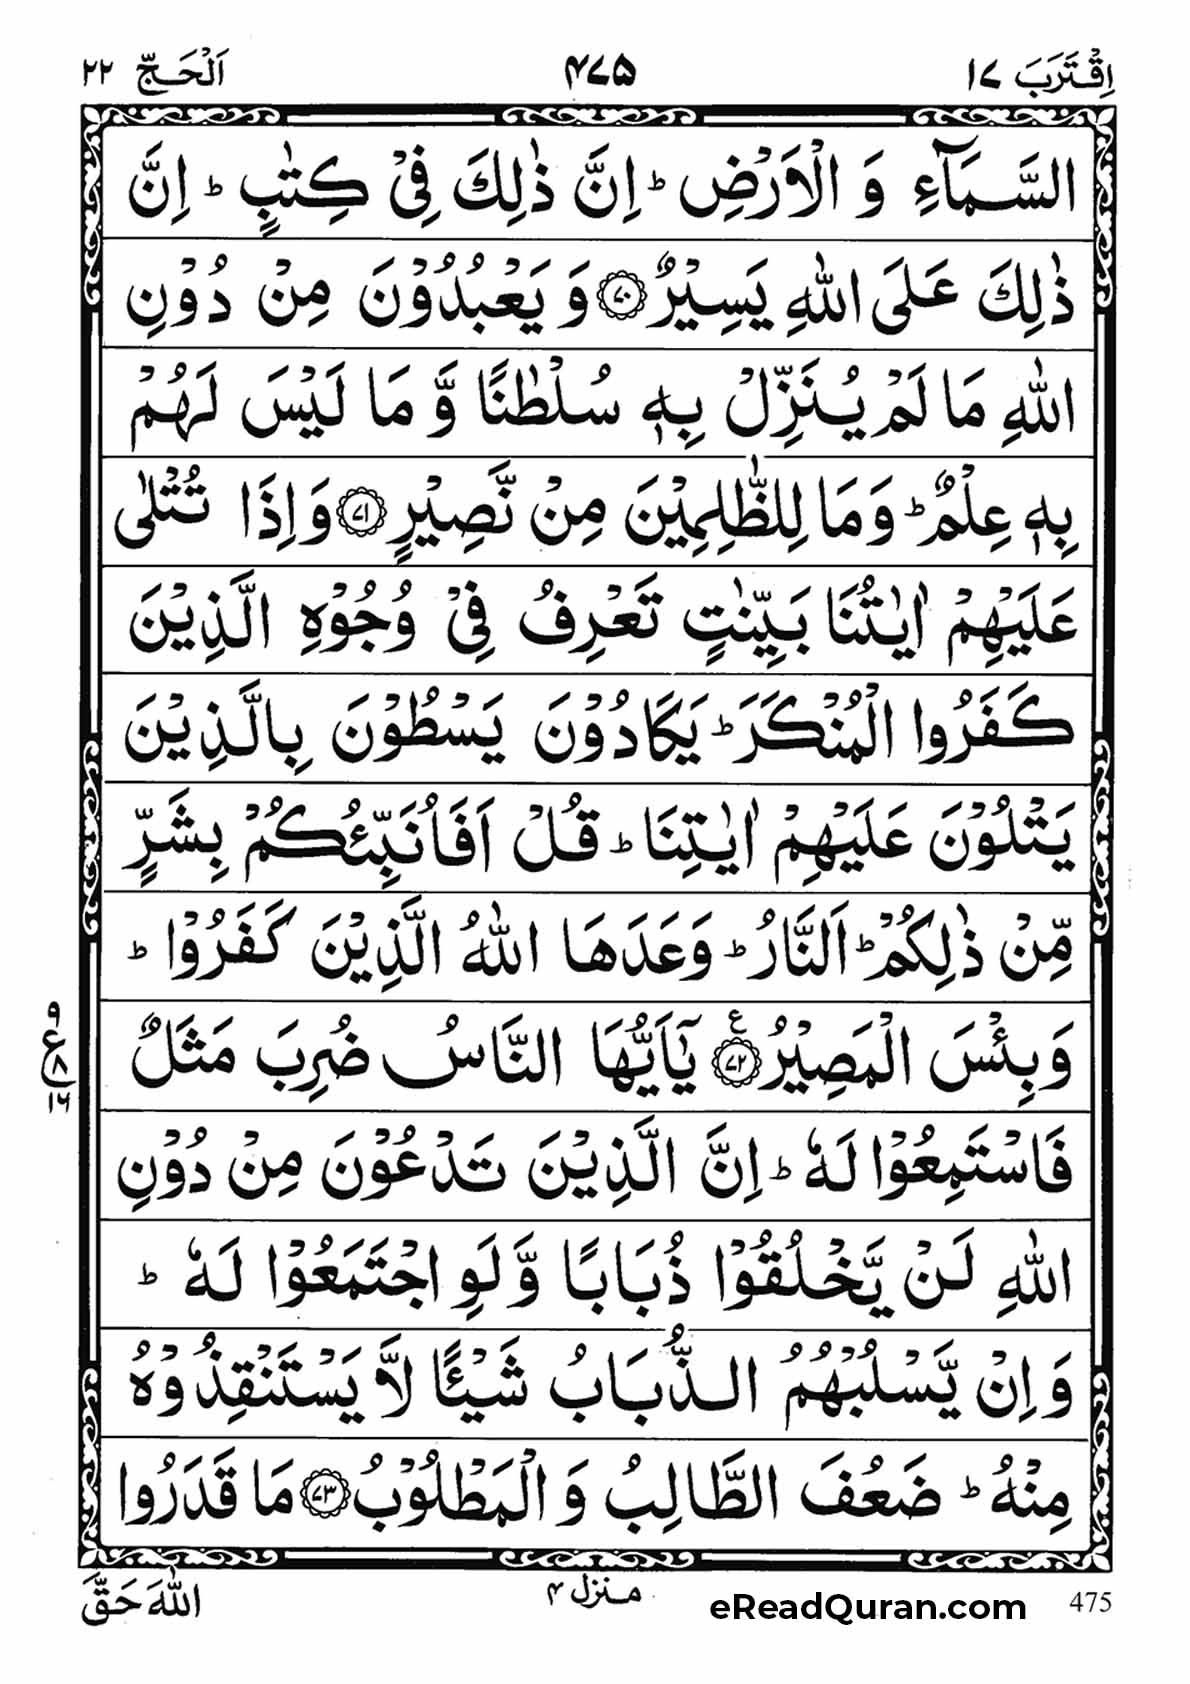 اِقْتَرَبَ ١٧ ۴۷۵ اَلْحَجّ ٢٢
السَّمَآءِ وَ الْاَرْضِ ؕ اِنَّ ذٰلِكَ فِیْ كِتٰبٍ ؕ اِنَّ
ذٰلِكَ عَلَی اللّٰهِ یَسِیْرٌ ۝۷۰ وَ یَعْبُدُوْنَ مِنْ دُوْنِ
اللّٰهِ مَا لَمْ یُنَزِّلْ بِهٖ سُلْطٰنًا وَّ مَا لَیْسَ لَهُمْ
بِهٖ عِلْمٌ ؕ وَ مَا لِلظّٰلِمِیْنَ مِنْ نَّصِیْرٍ ۝۷۱ وَ اِذَا تُتْلٰی
عَلَیْهِمْ اٰیٰتُنَا بَیِّنٰتٍ تَعْرِفُ فِیْ وُجُوْهِ الَّذِیْنَ
كَفَرُوا الْمُنْكَرَ ؕ یَكَادُوْنَ یَسْطُوْنَ بِالَّذِیْنَ
یَتْلُوْنَ عَلَیْهِمْ اٰیٰتِنَا ؕ قُلْ اَفَاُنَبِّئُكُمْ بِشَرٍّ
مِّنْ ذٰلِكُمْ ؕ اَلنَّارُ ؕ وَعَدَهَا اللّٰهُ الَّذِیْنَ كَفَرُوْا ؕ
وَ بِئْسَ الْمَصِیْرُ ۝۷۲ ع یٰۤاَیُّهَا النَّاسُ ضُرِبَ مَثَلٌ
۹ ع ۸ ۱۶
فَاسْتَمِعُوْا لَهٗ ؕ اِنَّ الَّذِیْنَ تَدْعُوْنَ مِنْ دُوْنِ
اللّٰهِ لَنْ یَّخْلُقُوْا ذُبَابًا وَّ لَوِ اجْتَمَعُوْا لَهٗ ؕ
وَ اِنْ یَّسْلُبْهُمُ الذُّبَابُ شَیْـًٔا لَّا یَسْتَنْقِذُوْهُ
مِنْهُ ؕ ضَعُفَ الطَّالِبُ وَ الْمَطْلُوْبُ ۝۷۳ مَا قَدَرُوا
475 eReadQuran.com منزل ۴ اللّٰهَ حَقَّ